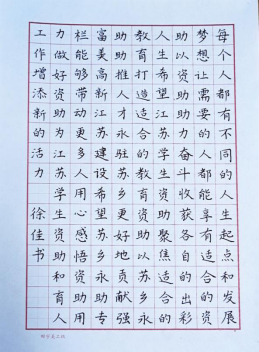 每个人都有不同的人生起点和发展
梦想让需要的人都能享有适合的资
助以资助助力奋斗收获各自的出彩
人生希望江苏学生资助聚焦适合的
教育打造适合的教育资助以苏乡永
助推人才永驻苏乡更好地
富美高新江苏建设希望苏乡永助
栏能够带动更多人用心感悟资助
力做好资助为江苏学生资助和育人
工作增添新的活力
徐佳书